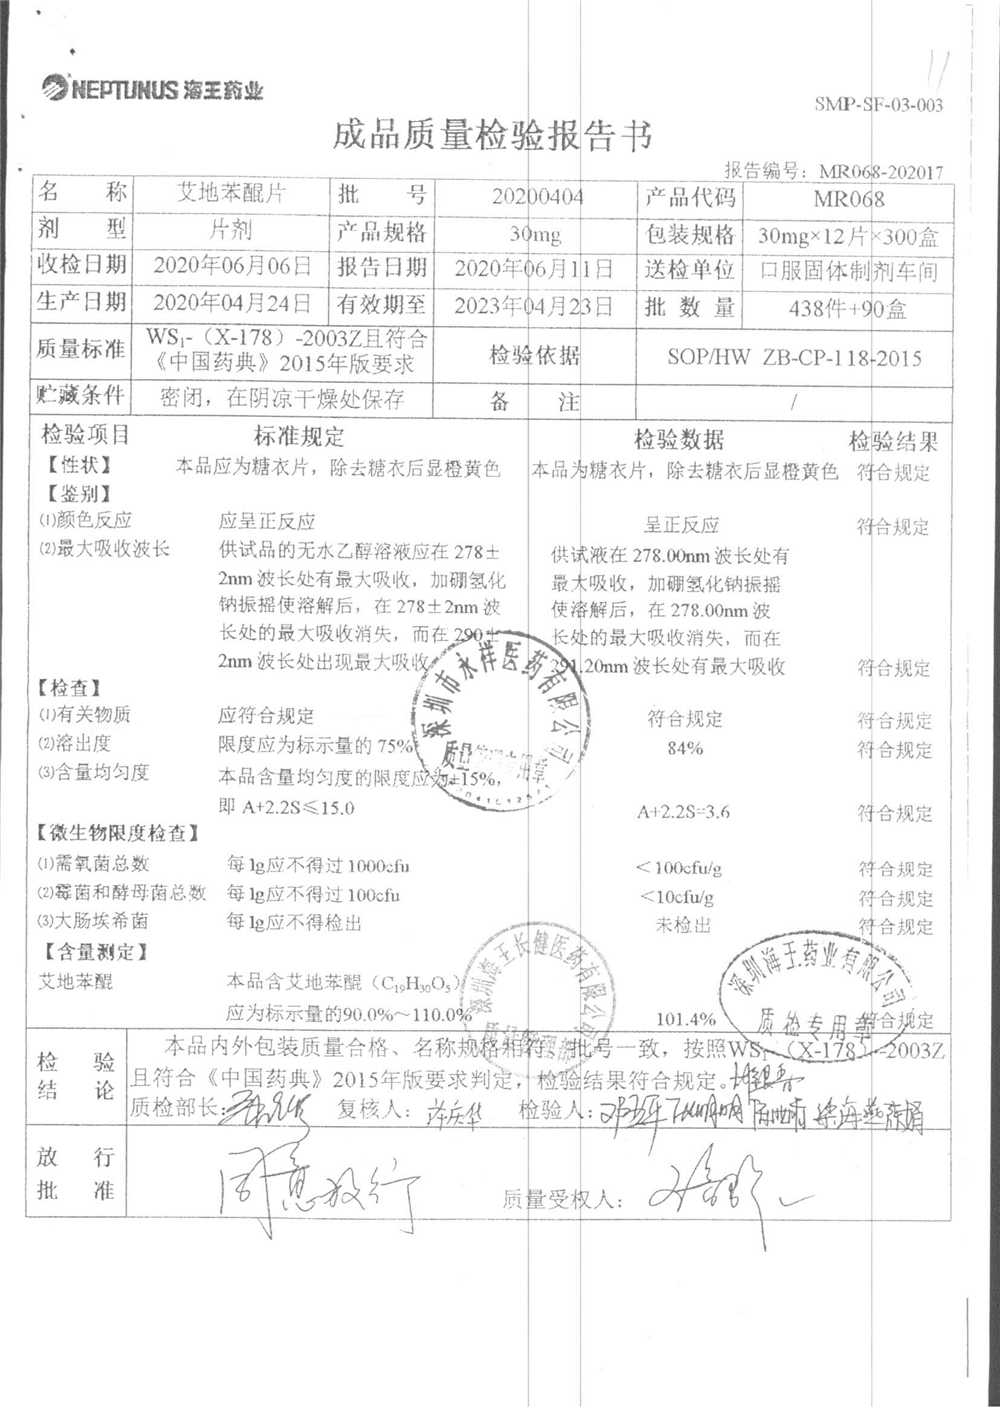 NEPTUNUS 海王药业
11
SMP-SF-03-003
成品质量检验报告书
报告编号：MR068-202017
名 称 艾地苯醌片 批 号 20200404 产品代码 MR068
剂 型 片剂 产品规格 30mg 包装规格 30mg×12片×300盒
收检日期 2020年06月06日 报告日期 2020年06月11日 送检单位 口服固体制剂车间
生产日期 2020年04月24日 有效期至 2023年04月23日 批 数 量 438件+90盒
质量标准 WS₁-（X-178）-2003Z且符合《中国药典》2015年版要求 检验依据 SOP/HW ZB-CP-118-2015
贮藏条件 密闭，在阴凉干燥处保存 备 注 /
检验项目 标准规定 检验数据 检验结果
【性状】 本品应为糖衣片，除去糖衣后显橙黄色 本品为糖衣片，除去糖衣后显橙黄色 符合规定
【鉴别】
⑴颜色反应 应呈正反应 呈正反应 符合规定
⑵最大吸收波长 供试品的无水乙醇溶液应在 278± 供试液在 278.00nm 波长处有
2nm 波长处有最大吸收，加硼氢化 最大吸收，加硼氢化钠振摇
钠振摇使溶解后，在 278±2nm 波 使溶解后，在 278.00nm 波
长处的最大吸收消失，而在 290± 长处的最大吸收消失，而在
2nm 波长处出现最大吸收 291.20nm 波长处有最大吸收 符合规定
【检查】
⑴有关物质 应符合规定 符合规定 符合规定
⑵溶出度 限度应为标示量的 75% 84% 符合规定
⑶含量均匀度 本品含量均匀度的限度应为±15%，
即 A+2.2S≤15.0 A+2.2S=3.6 符合规定
【微生物限度检查】
⑴需氧菌总数 每 1g应不得过 1000cfu ＜100cfu/g 符合规定
⑵霉菌和酵母菌总数 每 1g应不得过 100cfu <10cfu/g 符合规定
⑶大肠埃希菌 每 1g应不得检出 未检出 符合规定
【含量测定】
艾地苯醌 本品含艾地苯醌（C₁₉H₃₀O₅）
应为标示量的90.0%～110.0% 101.4% 符合规定
深圳市永祥医药有限公司
深圳海王长健医药有限公司
深圳海王药业有限公司
质检专用章
检 验 结 论 本品内外包装质量合格、名称规格相符、批号一致，按照WS₁-（X-178）-2003Z
且符合《中国药典》2015年版要求判定，检验结果符合规定。
质检部长： 复核人： 检验人：
放 行 批 准 同意放行 质量受权人：